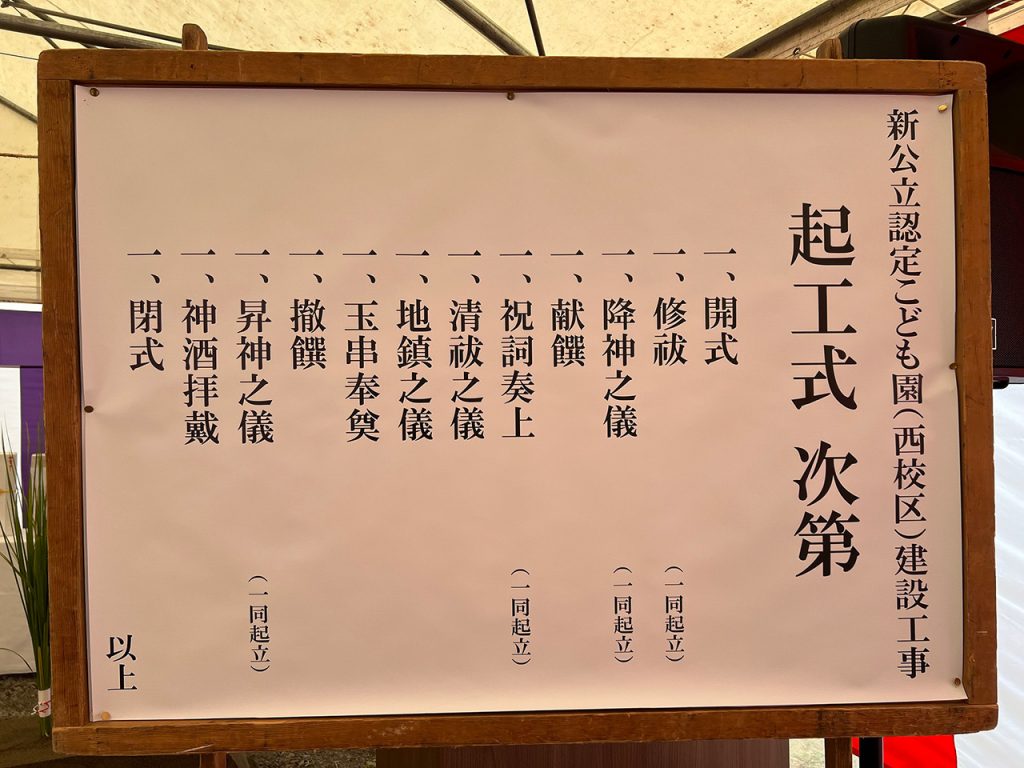 新公立認定こども園(西校区)建設工事
起工式 次第
一、開式
一、修祓 (一同起立)
一、降神之儀 (一同起立)
一、献饌
一、祝詞奏上 (一同起立)
一、清祓之儀
一、地鎮之儀
一、玉串奉奠
一、撤饌
一、昇神之儀 (一同起立)
一、神酒拝戴
一、閉式
以上